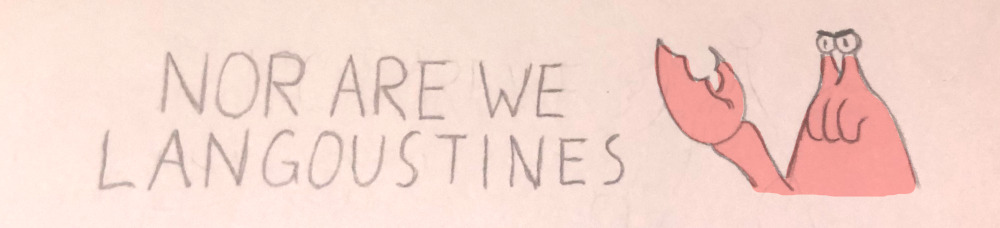 NOR ARE WE
LANGOUSTINES